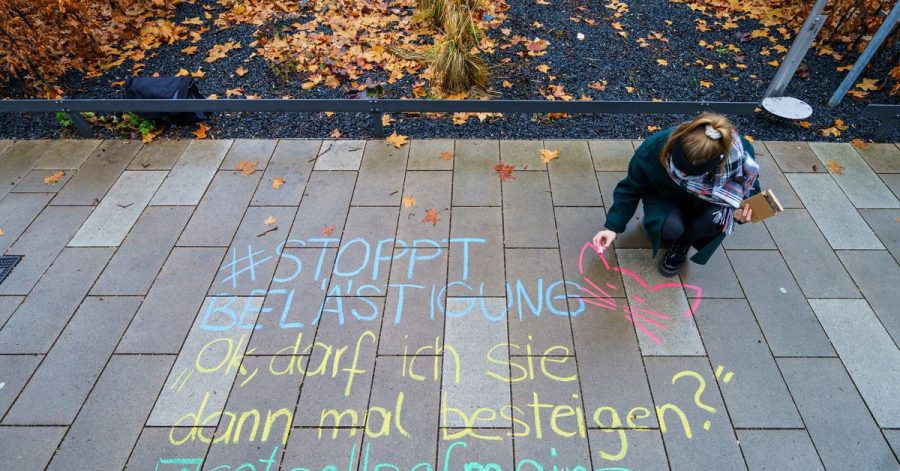 #STOPPT
BELÄSTIGUNG
„Ok, darf ich sie
dann mal besteigen?"